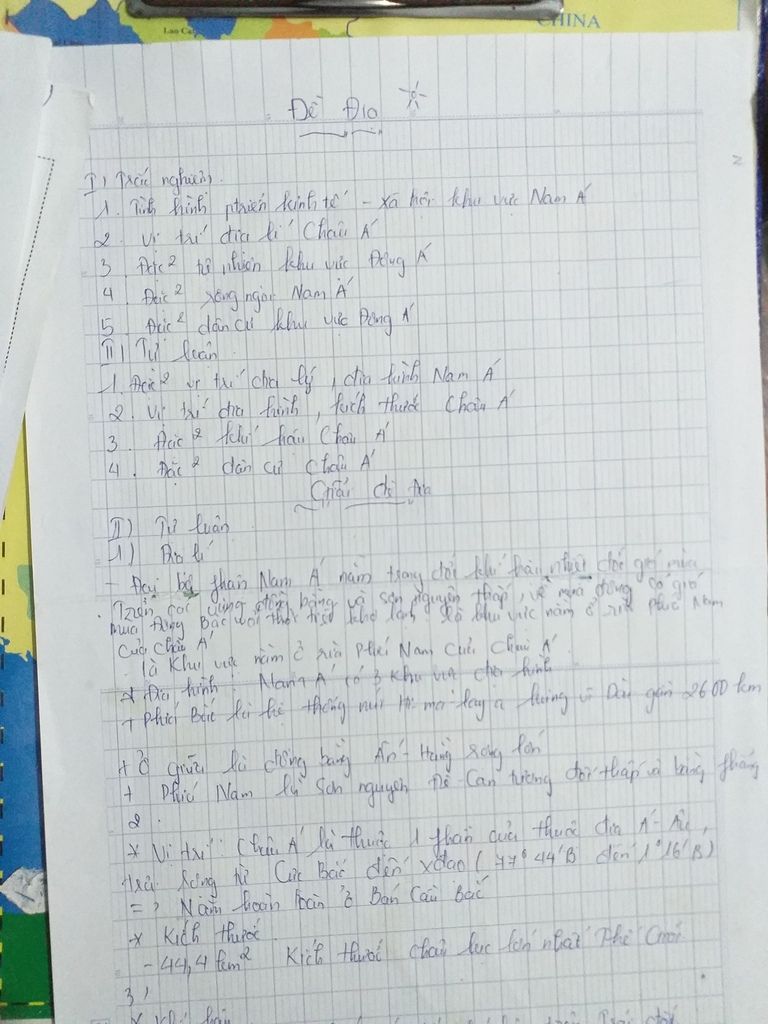 Lao Cai
CHINA
Đề Địa
I) Trắc nghiệm.
1. Tình hình ptriển kinh tế - xã hội khu vực Nam Á
2. Vị trí địa lí Châu Á
3. Đặc² tự nhiên khu vực Đông Á
4. Đặc² sông ngòi Nam Á
5. Đặc² dân cư khu vực Đông Á
II) Tự luận
1. Đặc² vị trí địa lý, địa hình Nam Á
2. Vị trí địa hình, kích thước Châu Á
3. Đặc² khí hậu Châu Á
4. Đặc² dân cư Châu Á
Giải đề Địa
II) Tự luận
1)
- Đại bộ phận Nam Á nằm trong đới khí hậu nhiệt đới gió mùa
. Trên các vùng đồng bằng và sơn nguyên thấp, về mùa đông có gió
mùa Đông Bắc với thời tiết khô lạnh. Là khu vực nằm ở rìa phía Nam
của Châu Á
- là khu vực nằm ở rìa phía Nam của Châu Á
* Địa hình: Nam Á có 3 khu vực địa hình
+ Phía Bắc là hệ thống núi Hi-ma-lay-a hùng vĩ Dài gần 2600 km
+ Ở giữa là đồng bằng Ấn - Hằng rộng lớn
+ Phía Nam là Sơn nguyên Đê-Can tương đối thấp và bằng phẳng
2.
* Vị trí: Châu Á là thuộc 1 phần của thuộc địa Á-Âu,
trải rộng từ Cực Bắc đến xđạo (77°44'B đến 1°16'B)
=> Nằm hoàn toàn ở Bán Cầu Bắc
* Kích thước
- 44,4 km² Kích thước châu lục lớn nhất Thế Giới
3)
* Khí hậu